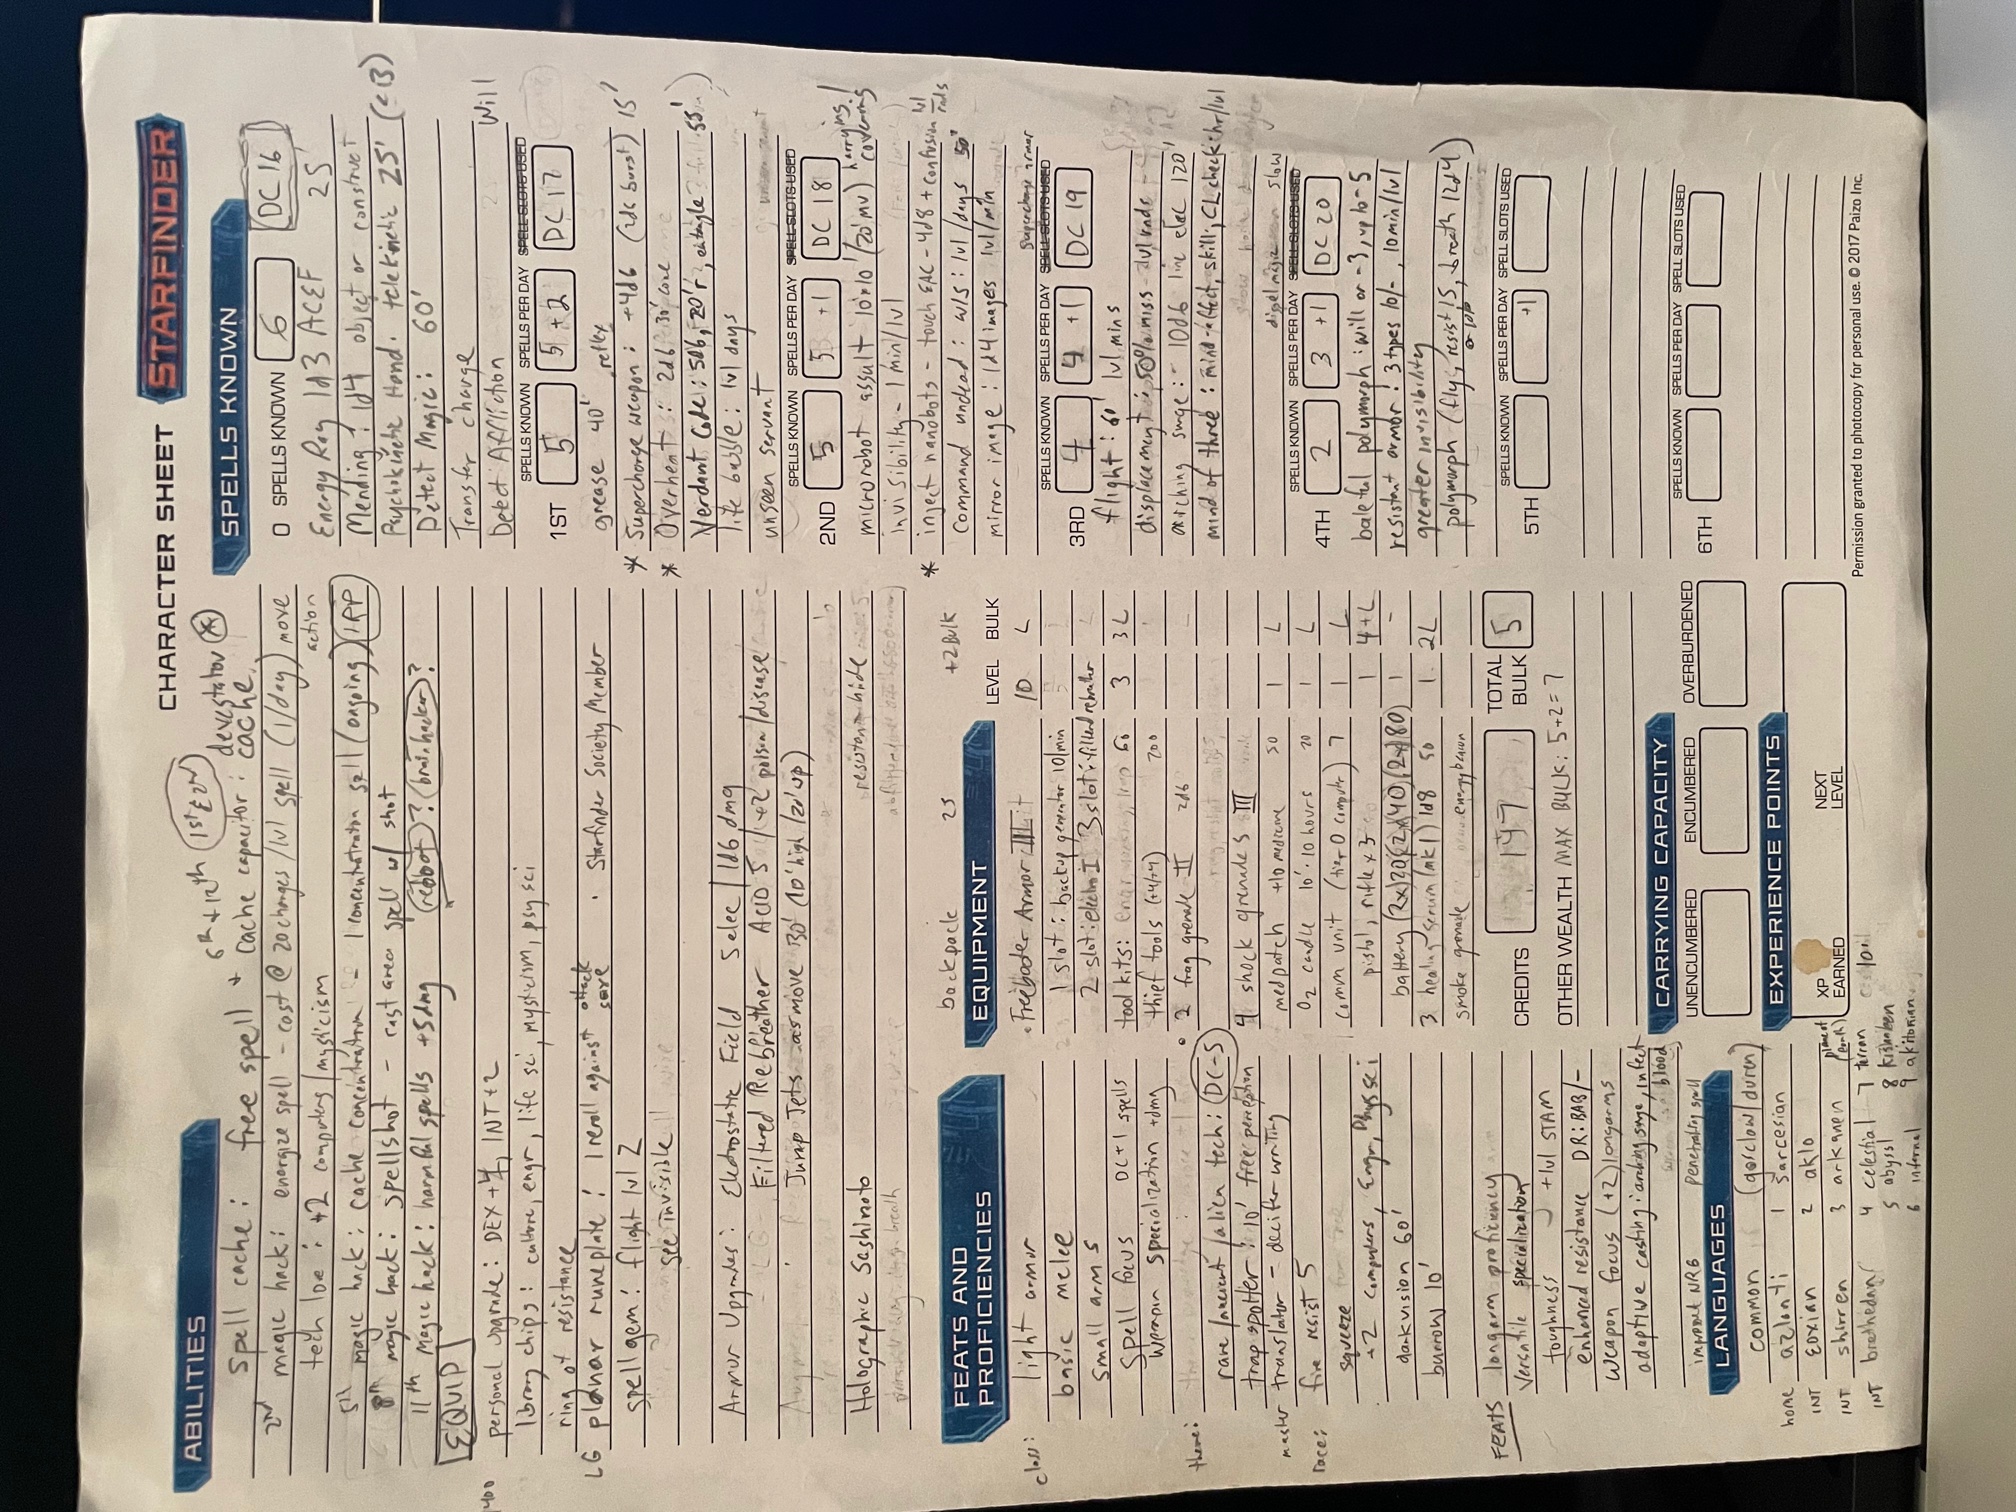 CHARACTER SHEET STARFINDER
ABILITIES
6th + 12th 1st & 2nd
spell cache: free spell + cache capacitor: devestator cache
2nd magic hack: energize spell - cost @ 20 charges/lvl spell (1/day) move action
tech lore: +2 computers/mysticism
5th magic hack: cache concentration - 1 concentration spell (ongoing) 1RP
8th magic hack: spellshot - cast area spell w/ shot
11th magic hack: harmful spells +5dmg reboot? brainhacker?
EQUIP
personal upgrade: DEX +4, INT +2
library chips: culture, engr, life sci, mysticism, psy sci
ring of resistance
LG planar runeplate: 1 reroll against attack save · Starfinder Society Member
spell gem: flight lvl 2
see invisible
Armor Upgrades: Electrostatic Field 5 elec / 1d6 dmg
Filtered Rebreather ACID 5 / +2 poison/disease
Jump Jets as move 30' (10' high / 20' up)
Holographic Sashimoto
hide
FEATS AND PROFICIENCIES
class: light armor
basic melee
small arms
spell focus DC+1 spells
weapon specialization +dmg
theme:
rare/ancient/alien tech: DC-5
trap spotter: 10' free perception
master translator - decifer writing
race: fire resist 5
squeeze
+2 computers, Engr, Phys sci
darkvision 60'
burrow 10'
FEATS longarm proficiency
Versatile specialization
toughness +lvl STAM
enhanced resistance DR: BAB/-
weapon focus (+2) longarms
adaptive casting: arching surge, infect blood
improvet NRG penetrating spell
LANGUAGES
common (gosclaw/duren)
home azlanti 1 sarcesian
INT eoxian 2 aklo
INT shirren 3 arkanen
INT brethedan 4 celestial 7 terran
5 abyssl 8 kishaleen
6 infernal 9 akitonian
backpack 25 +2 Bulk
EQUIPMENT
LEVEL BULK
Freeboder Armor III 10 L
1 slot: backup generator 10/min
2 slot: electro I 3 slot: filterd rebrether
tool kits: 60 3 3L
thief tools (+4/+4) 200
2 frag grenade II 2d6 —
4 shock grenades III
medpatch +10 medicine 50 1 L
O2 candle 10' · 10 hours 20 1 L
comm unit (tier 0 computer) 7 1 L
pistol, rifle x 3 1 4+L
battery (2x)20(2x)40(2x)80) 1 -
3 healing serum (mk1) 1d8 50 1 2L
smoke grenade
CREDITS 147 TOTAL BULK 5
OTHER WEALTH MAX BULK: 5+2=7
CARRYING CAPACITY
UNENCUMBERED ENCUMBERED OVERBURDENED
EXPERIENCE POINTS
XP EARNED
NEXT LEVEL
SPELLS KNOWN
0 SPELLS KNOWN 6 DC 16
Energy Ray 1d3 ACEF 25'
Mending: 1d4 object or construct
Psychokinetic Hand. telekinetic 25' (<B)
Detect Magic: 60'
Transfer charge
Detect Affliction Will
SPELLS KNOWN SPELLS PER DAY SPELL SLOTS USED
1ST 5 5 +2 DC 17
grease 40' reflex
* Supercharge weapon: +4d6 (2d6 burst) 15'
* Overheat: 2d6 30' cone
Verdant Code: 5d6, 20'r, entangle 55'
life bubble: lvl days
unseen servant
SPELLS KNOWN SPELLS PER DAY SPELL SLOTS USED
2ND 5 5 +1 DC 18
microrobot assult 10x10' (20' mv) harrying/covering
invisibility - 1 min/lvl
* inject nanobots - touch EAC - 4d8 + confusion lvl rnds
Command undead: w/s: lvl/days 50'
mirror image: 1d4 images lvl/min
supercharge armor
SPELLS KNOWN SPELLS PER DAY SPELL SLOTS USED
3RD 4 4 +1 DC 19
flight: 60' lvl mins
displacement: 50% miss lvl rnds
arching surge: - 10d6 line elec 120'
mind of three: mind-affect, skill, CL check hr/lvl
dispel magic slow
SPELLS KNOWN SPELLS PER DAY SPELL SLOTS USED
4TH 2 3 +1 DC 20
baleful polymorph: will or -3, up to -5
resistant armor: 3 types 10/-, 10min/lvl
greater invisibility
polymorph (fly, resist 15, breath 12d4)
SPELLS KNOWN SPELLS PER DAY SPELL SLOTS USED
5TH +1
SPELLS KNOWN SPELLS PER DAY SPELL SLOTS USED
6TH
Permission granted to photocopy for personal use. © 2017 Paizo Inc.